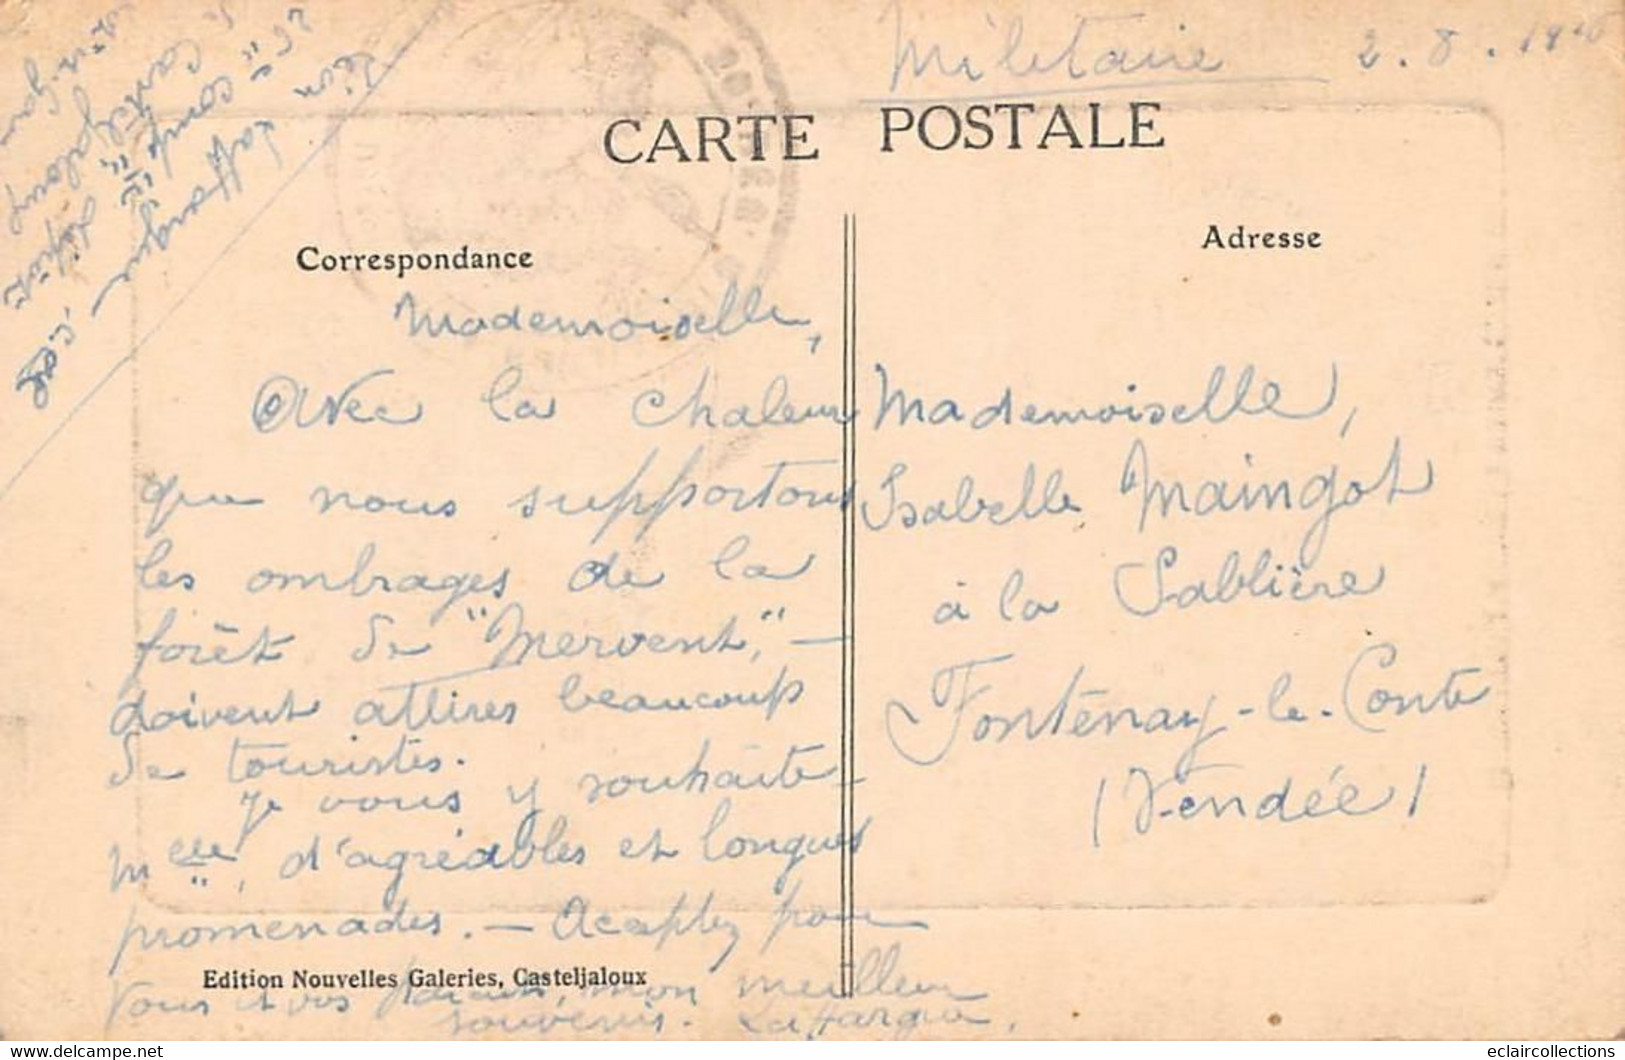 Militaire 2.8.19
CARTE POSTALE
Correspondance
Adresse
Léon Laffargue
26e Comp
Casteljaloux
Mademoiselle,
Avec la chaleur
que nous supportons
les ombrages de la
forêt de "Mervent," -
doivent attirer beaucoup
de touristes.
Je vous y souhaite
Melle, d'agréables et longues
promenades. - Acceptez pour
vous et vos Parents, mon meilleur
souvenir. Laffargue,
Edition Nouvelles Galeries, Casteljaloux
Mademoiselle,
Isabelle Maingot
à la Sablière
Fontenay-le-Conte
(Vendée)
eclaircollections